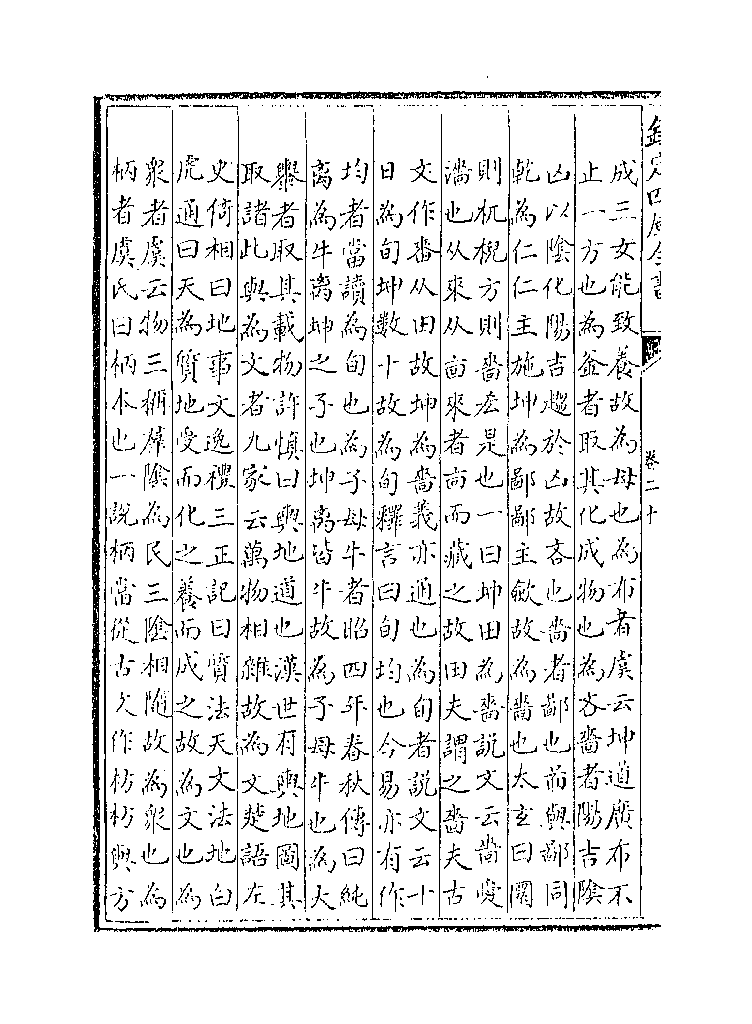 欽定四庫全書
卷二十
成三女能致養故為母也為布者虞云坤道廣布不
止一方也為釜者取其化成物也為吝嗇者陽吉陰
凶以陰化陽吉趨於凶故吝也嗇者鄙也啚與鄙同
乾為仁仁主施坤為鄙鄙主歛故為嗇也太玄曰圜
則杌棿方則嗇是也一曰坤田為嗇說文云嗇愛
濇也从來从㐭來者㐭而藏之故田夫謂之嗇夫古
文作从田故坤為嗇義亦通也為旬者說文云十
日為旬坤數十故為旬釋言曰旬均也今易亦有作
均者當讀為旬也為子母牛者昭四年春秋傳曰純
離為牛離坤之子也坤離皆牛故為子母牛也為大
轝者取其載物許慎曰輿地道也漢世有輿地圖其
取諸此與為文者九家云萬物相雜故為文楚語左
史倚相曰地事文逸禮三正記曰質法天文法地白
虎通曰天為質地受而化之養而成之故為文也為
衆者虞云物三稱羣陰為民三陰相隨故為衆也為
柄者虞氏曰柄本也一說柄當從古文作枋枋與方